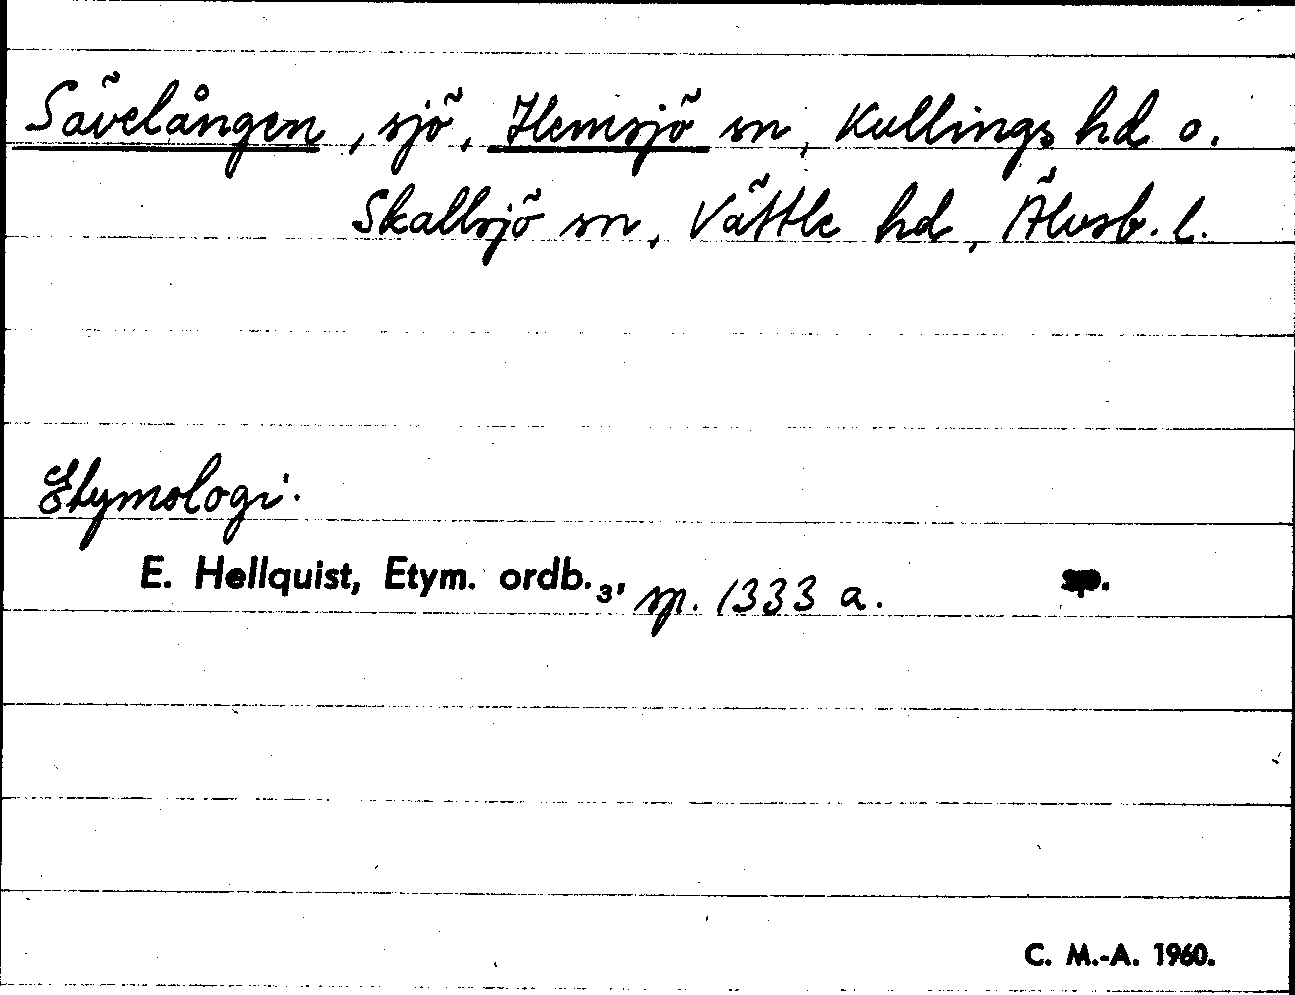 Sävelången, sjö, Hemsjö sn, Kullings hd o.
Skallsjö sn, Vättle hd, Älvsb. l.
Etymologi.
E. Hellquist, Etym. ordb.3, sp. 1333 a. sp.
C. M.-A. 1960.